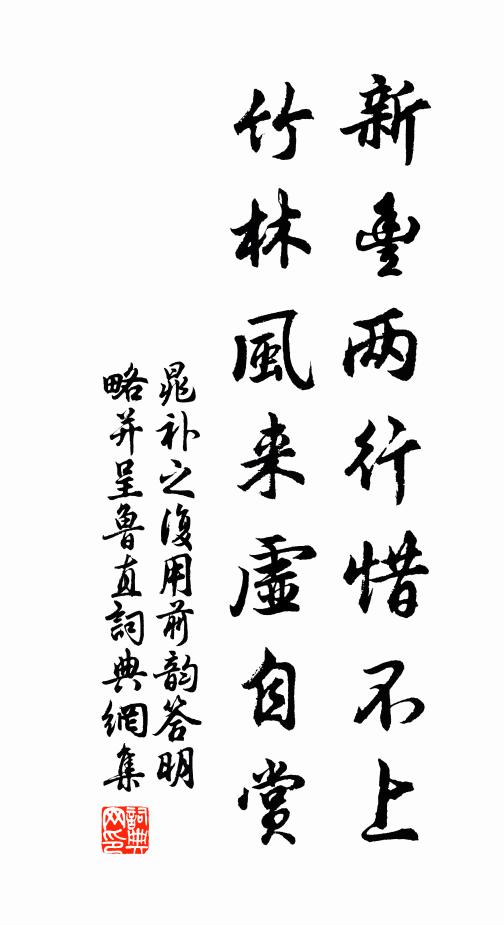 新豐两行惜不上
竹林風来虛自賞
晁补之復用前韵答明
略并呈魯直詞典網集
詞典网印